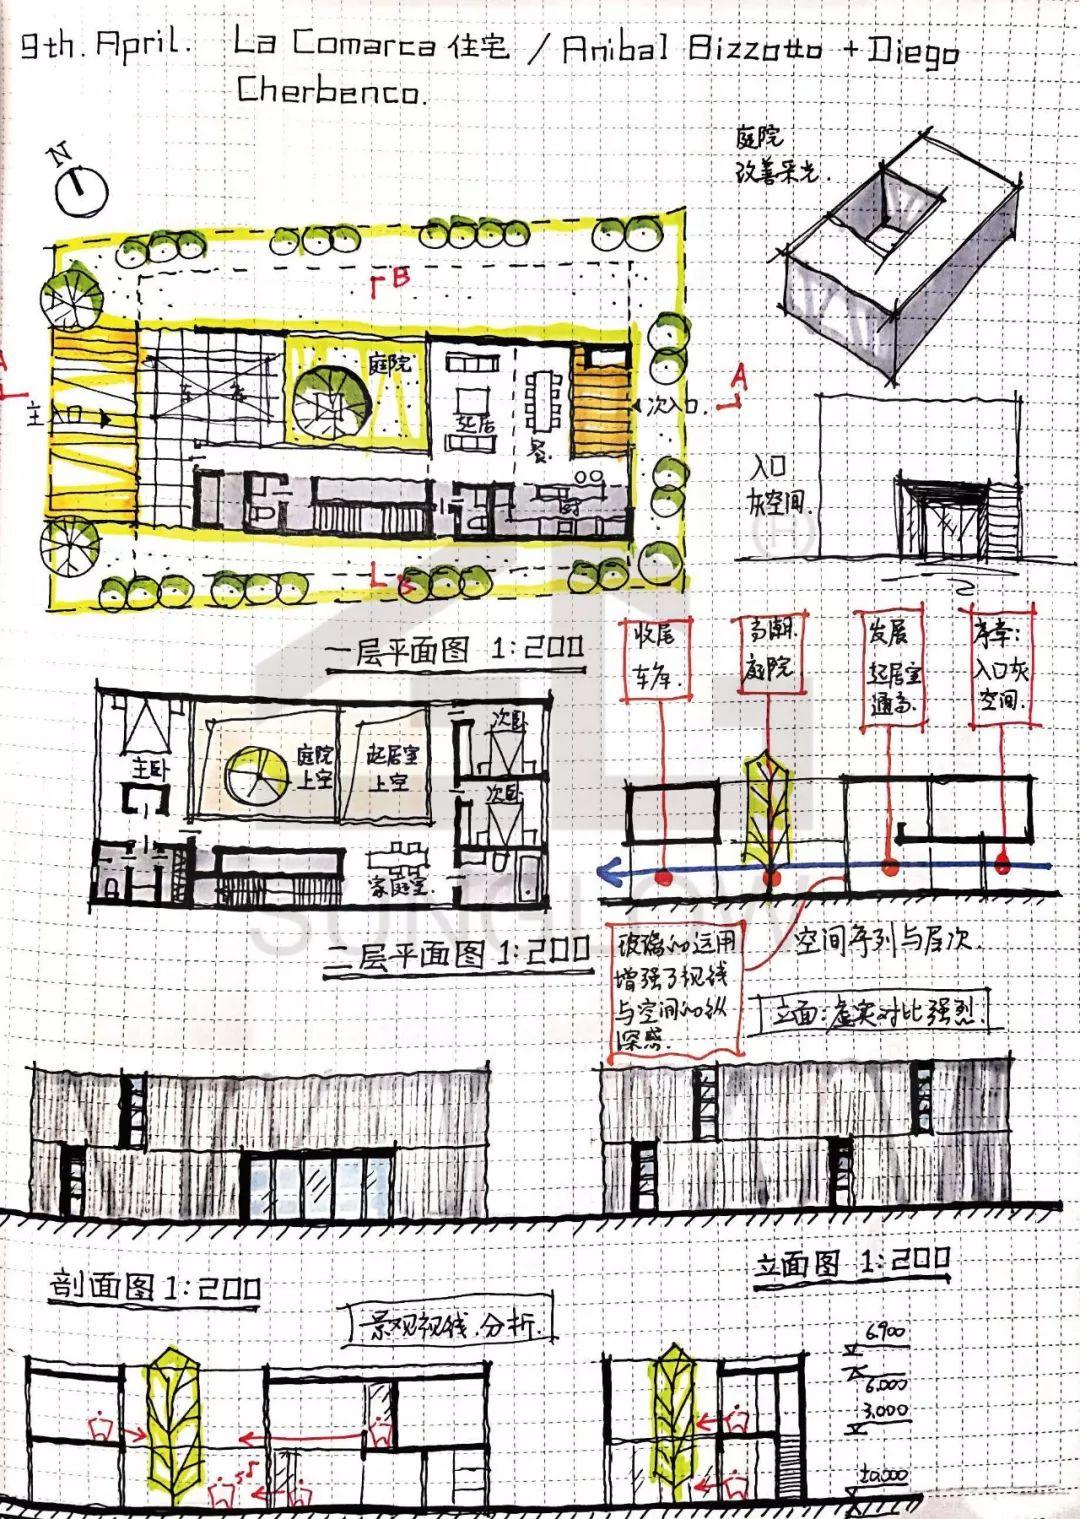 9th. April. La Comarca 住宅 / Anibal Bizzotto + Diego
Cherbenco.
N
庭院
改善采光.
B
A
庭院
车库
主入口
起居
餐
厨
次入口.
A
B
入口
灰空间.
一层平面图 1:200
收尾
车库.
高潮.
庭院
发展
起居室
通高.
序幕:
入口灰
空间.
主卧
庭院
上空
起居室
上空
次卧
次卧
家庭室.
二层平面图 1:200
SUNGLOW
R
空间序列与层次.
玻璃的运用
增强了视线
与空间的纵
深感.
立面:虚实对比强烈.
剖面图 1:200
立面图 1:200
景观视线.分析.
6.900
6.000
3.000
±0.000